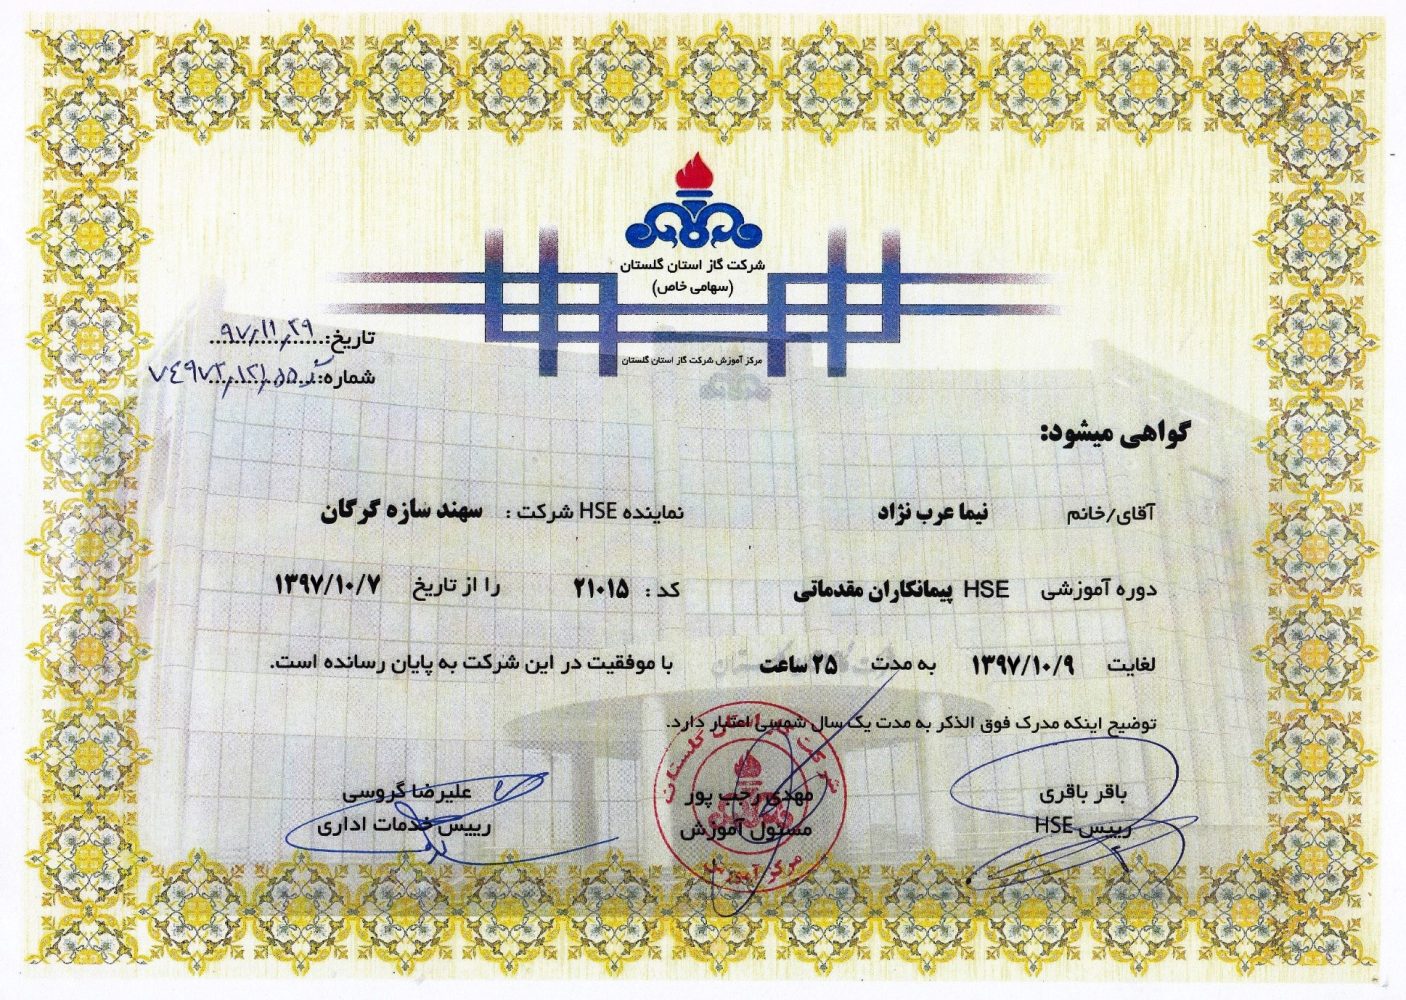 شرکت گاز استان گلستان
(سهامی خاص)
مرکز آموزش شرکت گاز استان گلستان
تاریخ: ۹۷/۱۱/۲۹
شماره:
گواهی میشود:
آقای/خانم نیما عرب نژاد نماینده HSE شرکت : سهند سازه گرگان
دوره آموزشی HSE پیمانکاران مقدماتی کد : ۲۱۰۱۵ را از تاریخ ۱۳۹۷/۱۰/۷
لغایت ۱۳۹۷/۱۰/۹ به مدت ۲۵ ساعت با موفقیت در این شرکت به پایان رسانده است.
توضیح اینکه مدرک فوق الذکر به مدت یک سال شمسی اعتبار دارد.
باقر باقری
رییس HSE
مهدی رجب پور
مسئول آموزش
علیرضا گروسی
رییس خدمات اداری
شرکت گاز استان گلستان
مرکز آموزش